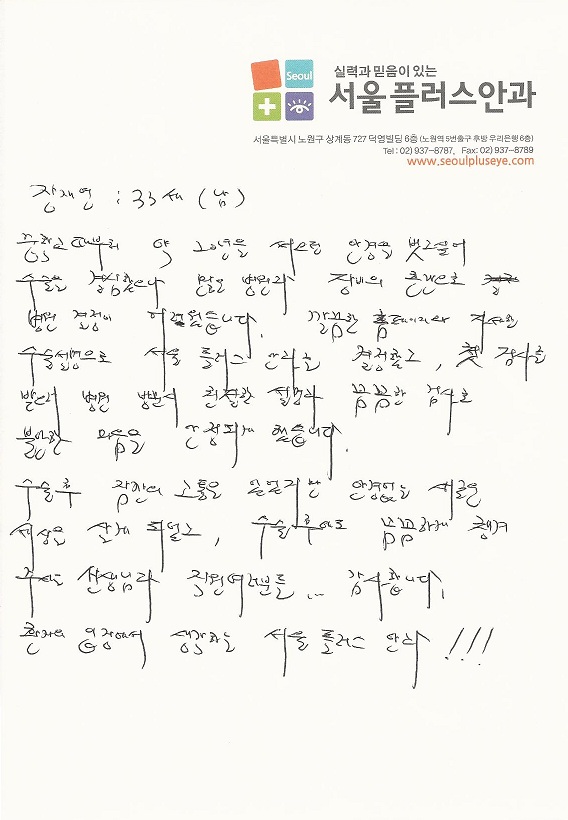 Seoul
실력과 믿음이 있는
서울플러스안과
서울특별시 노원구 상계동 727 덕영빌딩 6층 (노원역 5번출구 후방 우리은행 6층)
Tel : 02) 937-8787, Fax: 02) 937-8789
www.seoulpluseye.com
장재연 : 33세 (남)
중학교때부터 약 20년을 써오던 안경을 벗고싶어
수술을 결심했으나 많은 병원과 장비의 혼란으로
병원 결정이 어려웠습니다. 깔끔한 홈페이지와 자세한
수술설명으로 서울 플러스 안과를 결정하고, 첫 검사를
받으러 병원 방문시 친절한 설명과 꼼꼼한 검사로
불안한 마음을 안정되게 했습니다.
수술후 잠깐의 고통은 있었지만 안경없는 새로운
세상을 살게 되었고, 수술 후에도 꼼꼼하게 챙겨
주시는 선생님과 직원여러분들... 감사합니다.
환자의 입장에서 생각하는 서울 플러스 안과!!!